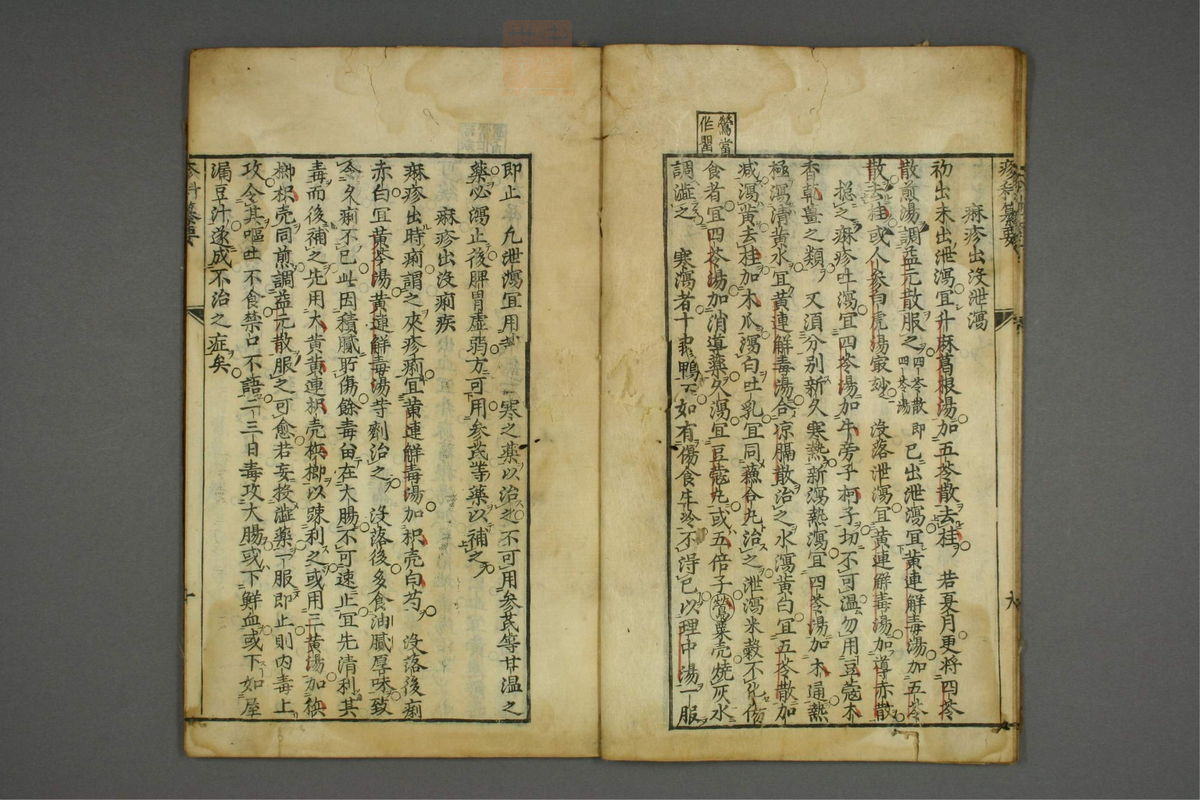 疹科纂要
麻疹出没泄瀉
初出未出泄瀉宜升麻葛根湯加五苓散去桂 若夏月更將四苓
散煎湯調益元散服之四苓散即四苓湯 已出泄瀉宜黄連解毒湯加五苓
散去桂或人參白虎湯最妙 没落泄瀉宜黄連解毒湯加導赤散
挻之麻疹吐瀉宜四苓湯加牛旁子柯子切不可温勿用豆蔻木
香乾薑之類 又須分别新久寒熱新瀉熱瀉宜四苓湯加木通熱
極瀉清黄水宜黄連解毒湯合凉膈散治之水瀉黄白宜五苓散加
减瀉黄去桂加木瓜瀉白吐乳宜同藿合丸治之泄瀉米穀不化傷
食者宜四苓湯加消導藥久瀉宜豆蔻丸或五倍子鶯粟壳燒灰水
調澁之 寒瀉者十中鴨一如有傷食生冷不得已以理中湯一服
鶯當
作罌
九
即止 凡泄瀉宜用 寒之藥以治之不可用參芪等甘温之
藥必瀉止後脾胃虚弱方可用參芪等藥以補之
麻疹出没痢疾
麻疹出時痢謂之夾疹痢宜黄連解毒湯加枳壳白芍 没落後痢
赤白宜黄芩湯黄連解毒湯等劑治之 没落後多食油膩厚味致
令久痢不已此因積膩所傷餘毒畄在大腸不可速止宜先清利其
毒而後補之先用大黄黄連枳壳梹榔以踈利之或用三黄湯加梹
榔枳壳同煎調益元散服之可愈若妄投澁藥一服即止則内毒上
攻令其嘔吐不食禁口不語二三日毒攻大腸或下鮮血或下如屋
漏豆汁遂成不治之症矣
十